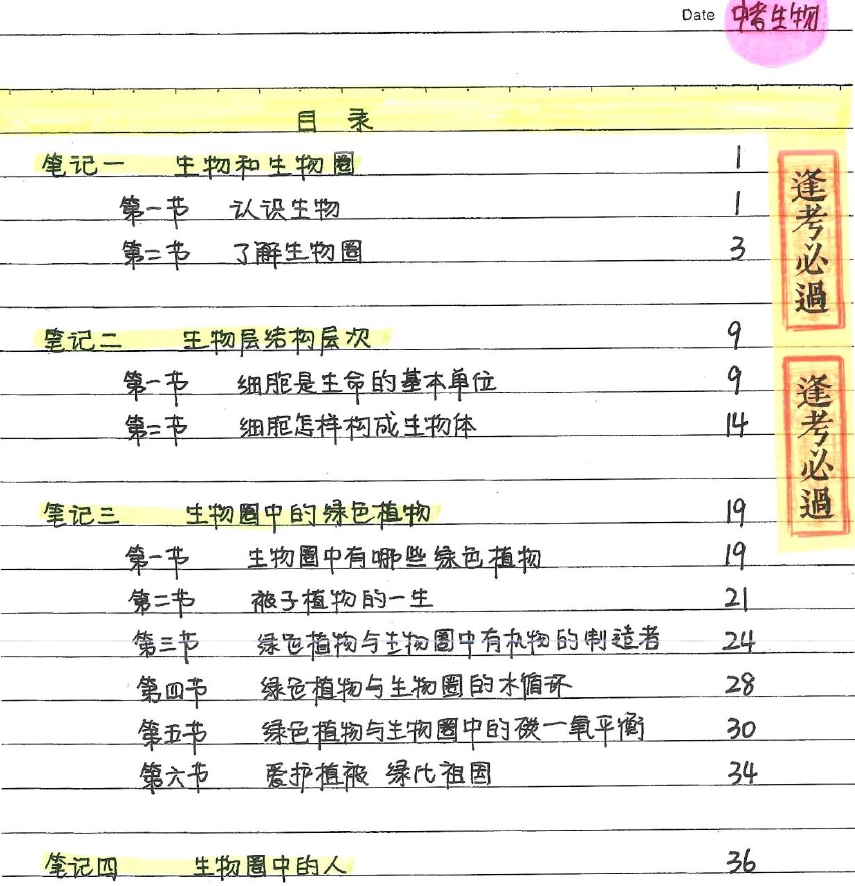 Date 中考生物
目 录
笔记一 生物和生物圈 1
第一节 认识生物 1
第二节 了解生物圈 3
笔记二 生物层结构层次 9
第一节 细胞是生命的基本单位 9
第二节 细胞怎样构成生物体 14
笔记三 生物圈中的绿色植物 19
第一节 生物圈中有哪些绿色植物 19
第二节 被子植物的一生 21
第三节 绿色植物与生物圈中有机物的制造者 24
第四节 绿色植物与生物圈的水循环 28
第五节 绿色植物与生物圈中的碳一氧平衡 30
第六节 爱护植被 绿化祖国 34
笔记四 生物圈中的人 36
逢考必過
逢考必過